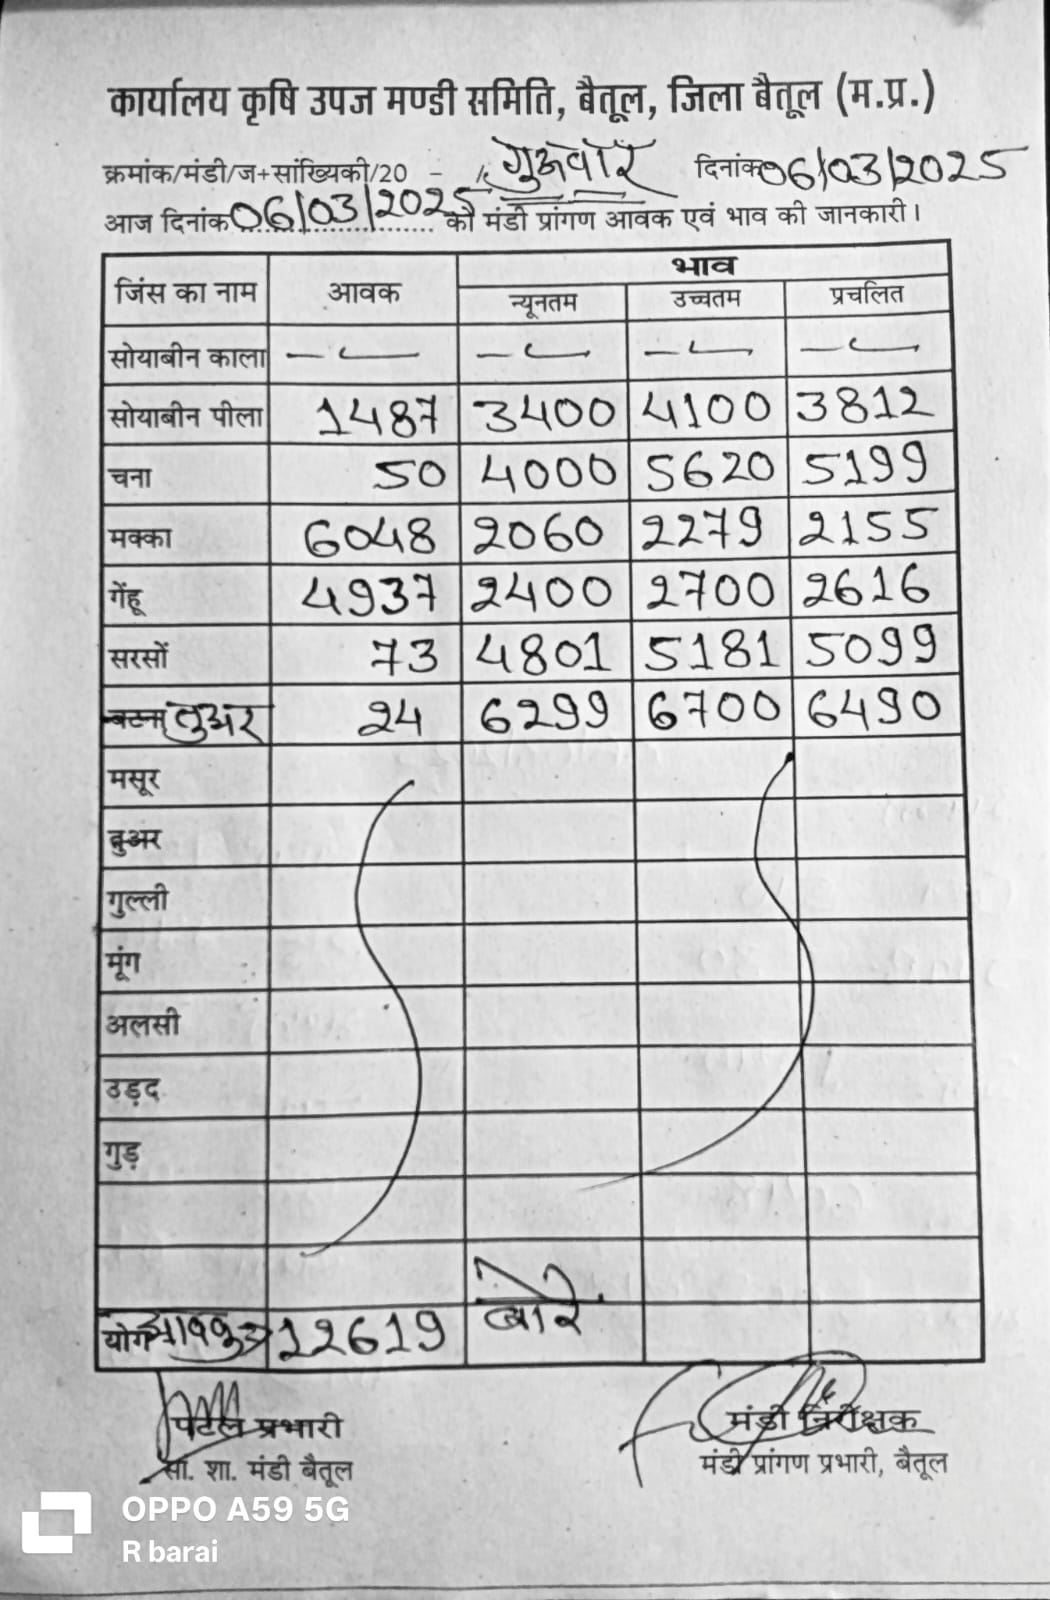 कार्यालय कृषि उपज मण्डी समिति, बैतूल, जिला बैतूल (म.प्र.)
क्रमांक/मंडी/ज+सांख्यिकी/20 - गुरूवार दिनांक 06/03/2025
आज दिनांक 06/03/2025 को मंडी प्रांगण आवक एवं भाव की जानकारी।
जिंस का नाम आवक भाव
न्यूनतम उच्चतम प्रचलित
सोयाबीन काला — — — —
सोयाबीन पीला 1487 3400 4100 3812
चना 50 4000 5620 5199
मक्का 6048 2060 2279 2155
गेंहू 4937 2400 2700 2616
सरसों 73 4801 5181 5099
तुअर 24 6299 6700 6490
मसूर
तुअर
गुल्ली
मूंग
अलसी
उड़द
गुड़
योग आवक 12619 बोरे
पटल प्रभारी मंडी निरीक्षक
सां. शा. मंडी बैतूल मंडी प्रांगण प्रभारी, बैतूल
OPPO A59 5G
R barai